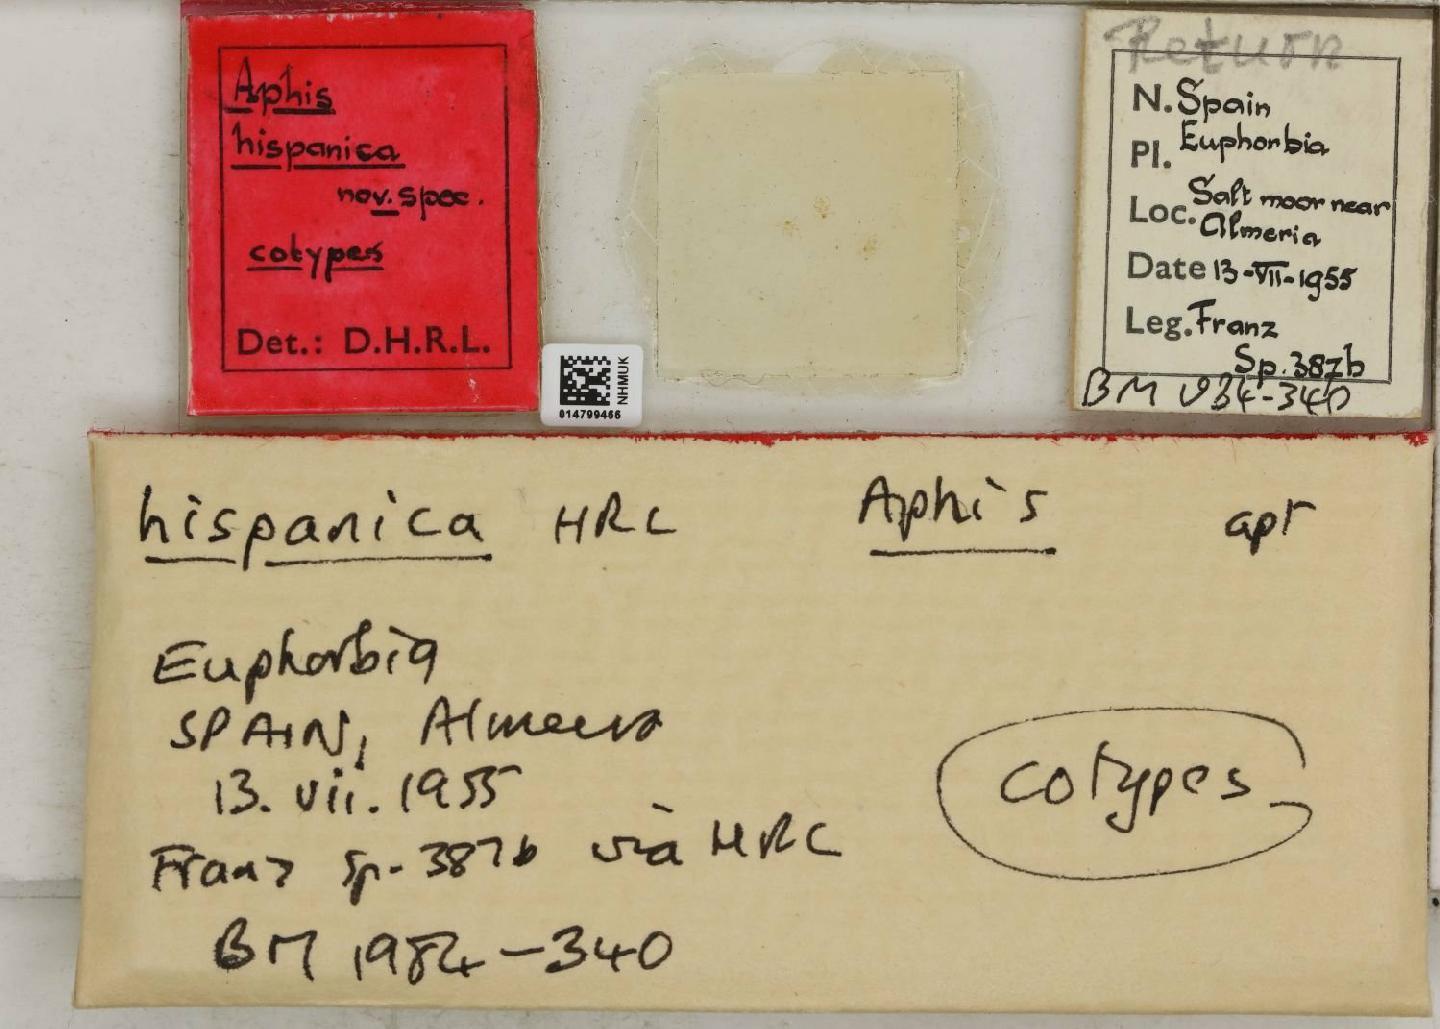 Aphis
hispanica
nov. spec.
cotypes
Det.: D.H.R.L.
NHMUK
014799466
Return
N. Spain
Pl. Euphorbia
Loc. Salt moor near
Almeria
Date 13-VII-1955
Leg. Franz
Sp. 387b
BM 1984-340
hispanica HRL Aphis apt
Euphorbia
SPAIN, Almeria
13. vii. 1955
Franz Sp. 387b via HRL
BM 1984-340
cotypes